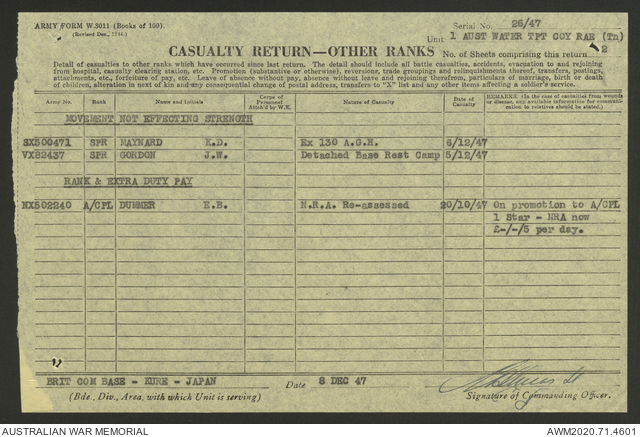 ARMY FORM W.3011 (Books of 100).
(Revised Dec., 1944.)
Serial No. 26/47
Unit 1 AUST WATER TPT COY RAE (Tn)
CASUALTY RETURN—OTHER RANKS
No. of Sheets comprising this return 2
Detail of casualties to other ranks which have occurred since last return. The detail should include all battle casualties, accidents, evacuation to and rejoining
from hospital, casualty clearing station, etc. Promotion (substantive or otherwise), reversions, trade groupings and relinquishments thereof, transfers, postings,
attachments, etc., forfeiture of pay, etc. Leave of absence without pay, absence without leave and rejoining therefrom, particulars of marriage, birth or death
of children, alteration in next of kin and any consequential change of postal address, transfers to "X" list and any other items affecting a soldier's service.
Army No. Rank Name and Initials. Corps of Personnel Attach'd by W.E. Nature of Casualty Date of Casualty REMARKS. (In the case of casualties from wounds or disease, any available information for communication to relatives should be stated.)
MOVEMENT NOT EFFECTING STRENGTH
SX500471 SPR MAYNARD K.D. Ex 130 A.G.H. 6/12/47
VX82437 SPR GORDON J.W. Detached Base Rest Camp 5/12/47
RANK & EXTRA DUTY PAY
NX502240 A/CPL DUMMER E.B. N.R.A. Re-assessed 20/10/47 On promotion to A/CPL
1 Star - NRA now
£-/-/5 per day.
BRIT COM BASE - KURE - JAPAN Date 8 DEC 47
(Bde., Div., Area, with which Unit is serving) Signature of Commanding Officer.
AUSTRALIAN WAR MEMORIAL AWM2020.71.4601